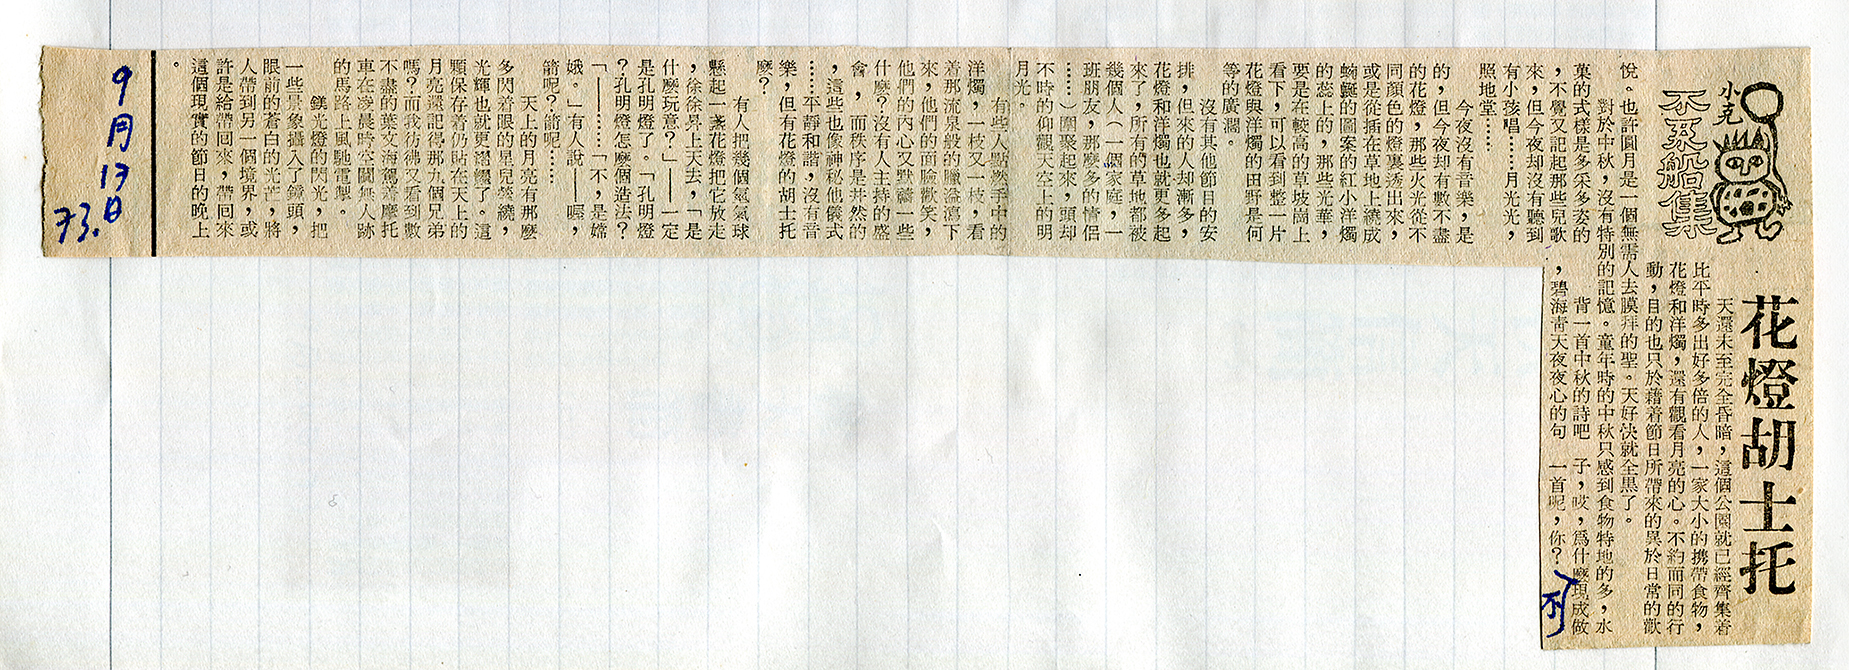 小克
不系船集
花燈胡士托
天還未至完全昏暗，這個公園就已經齊集着
比平時多出好多倍的人，一家大小的携帶食物，
花燈和洋燭，還有觀看月亮的心。不約而同的行
動，目的也只於藉着節日所帶來的異於日常的歡
悅。也許圓月是一個無需人去膜拜的聖。天好快就全黑了。
對於中秋，沒有特別的記憶。童年時的中秋只感到食物特地的多，水
菓的式樣是多采多姿的
，不覺又記起那些兒歌
來，但今夜却沒有聽到
有小孩唱……月光光，
照地堂……
今夜沒有音樂，是
的，但今夜却有數不盡
的花燈，那些火光從不
同顏色的燈裏透出來，
或是從插在草地上繞成
蜿蜒的圖案的紅小洋燭
的蕊上的，那些光華，
要是在較高的草坡崗上
看下，可以看到整一片
花燈與洋燭的田野是何
等的廣濶。
沒有其他節日的安
排，但來的人却漸多，
花燈和洋燭也就更多起
來了，所有的草地都被
幾個人（一個家庭，一
班朋友，那麼多的情侶
……）圍聚起來，頭却
不時的仰觀天空上的明
月光。
有些人點燃手中的
洋燭，一枝又一枝，看
着那流泉般的臘溢瀉下
來，他們的面臉歡笑，
他們的內心又默禱一些
什麼？沒有人主持的盛
會，而秩序是井然的
，這些也像神秘他儀式
……平靜和諧，沒有音
樂，但有花燈的胡士托
麼？
有人把幾個氫氣球
懸起一盞花燈把它放走
，徐徐昇上天去，「是
什麼玩意？」——一定
是孔明燈了。「孔明燈
？孔明燈怎麼個造法？
「——……「不，是嫦
娥。」有人說——喔，
箭呢？箭呢……
天上的月亮有那麼
多閃着眼的星兒縈繞，
光輝也就更濯纙了。這
顆保存着仍貼在天上的
月亮還記得那九個兄弟
嗎？而我彷彿又看到數
不盡的葉文海駕着摩托
車在凌晨時空闃無人跡
的馬路上風馳電掣。
鎂光燈的閃光，把
一些景象攝入了鏡頭，
眼前的蒼白的光芒，將
人帶到另一個境界，或
許是給帶回來，帶回來
這個現實的節日的晚上
。
背一首中秋的詩吧
，碧海靑天夜夜心的句
子，哎，爲什麼現成做
一首呢，你？
不
9月17日
73.